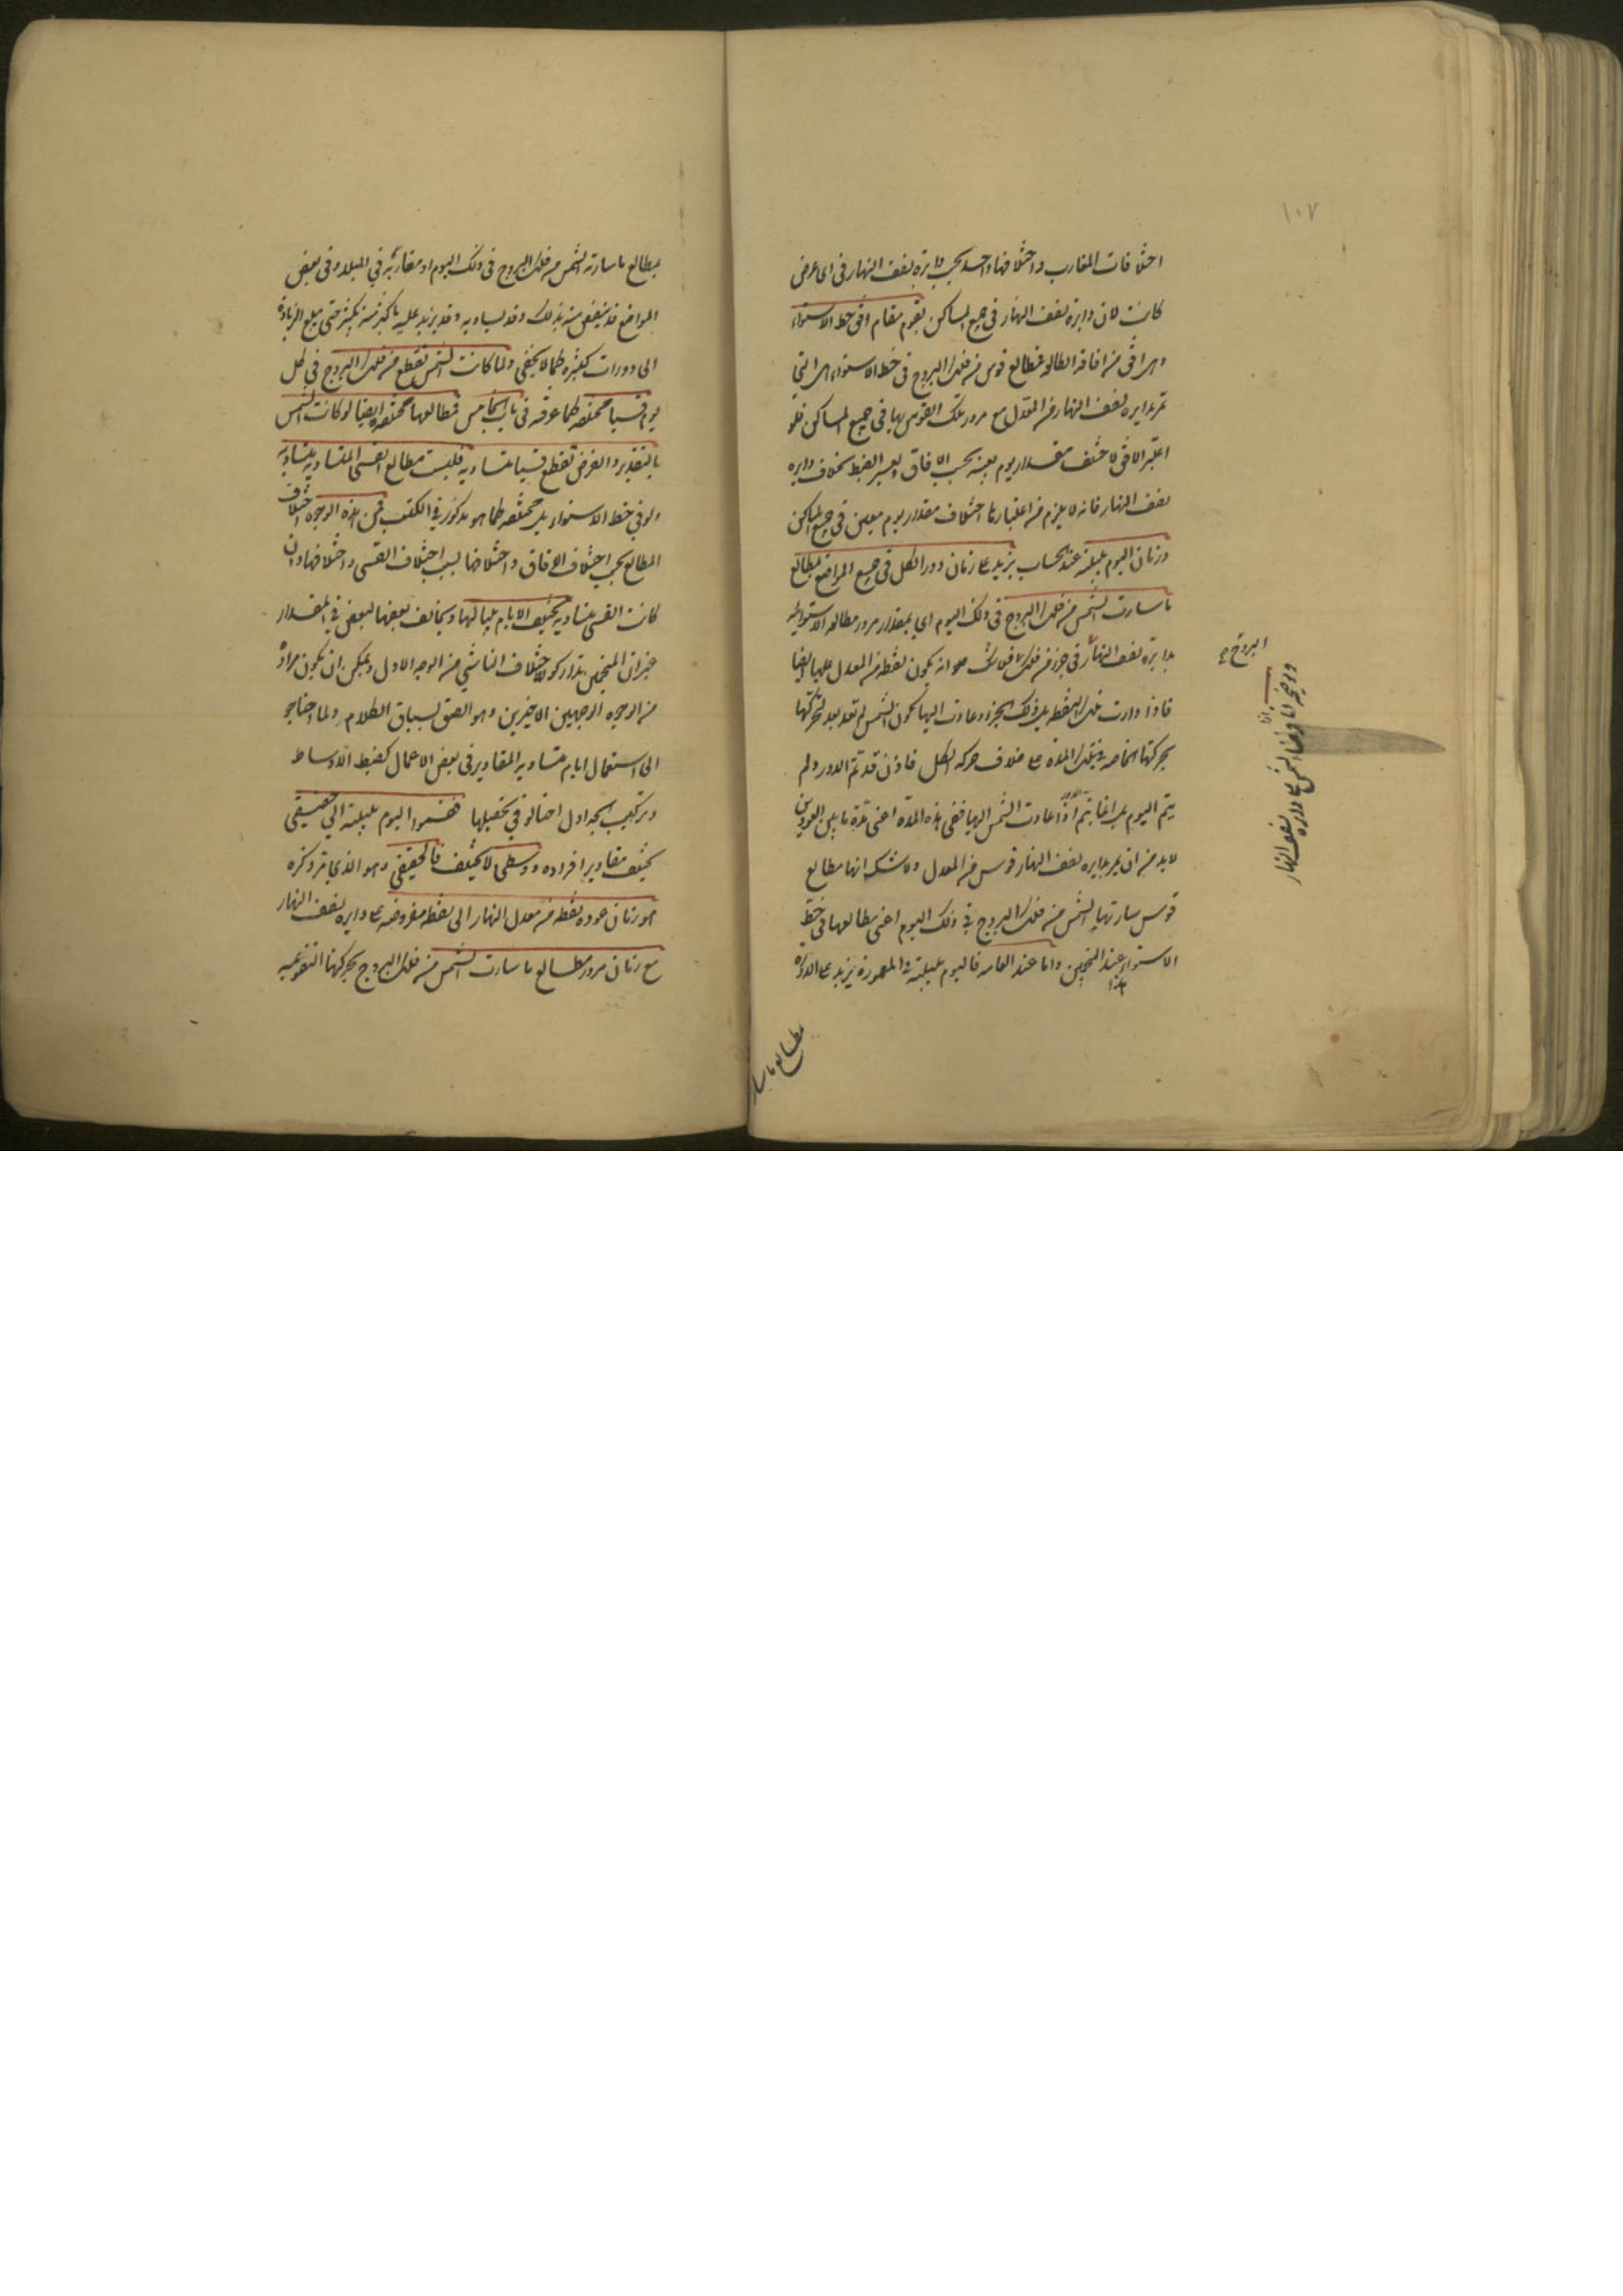 ١٠٧
اختلافات المغارب واختلافها واحد بحسب دايرة نصف النهار في اى عرض
كانت لان دايرة نصف النهار في جميع المساكن تقوم مقام افق خط الاستواء
وهى افق من افاقه الطالع فمطالع قوس من فلك البروج في خط الاستواء هى التى
تمر بدايره نصف النهار من المعدل مع مرور تلك القوس بها في جميع المساكن فلو
اعتبر الافق لاختلف مقدار يوم بعينه بحسب الافاق ويعسر الضبط بخلاف دايره
نصف النهار فانه لا يلزم من اعتبارها اختلاف مقدار يوم معين في جميع المساكن
وزمان اليوم بليلته عند الحساب يزيد على زمان دور الكل في جميع المواضع بمطالع
ما سارت الشمس من فلك البروج في ذلك اليوم اى بمقدار مرور مطالعه الاستوائية
بدايرة نصف النهار في جزء من فلك فلا شك هو انه يكون نقطه من المعدل عليها ايضا
فاذا دارت تلك النقطه مع ذلك الجزء وعادت اليها لكون الشمس لم تعد بعد لتحركها
بحركتها الخاصه في تلك المدة على خلاف حركه الكل فاذن قد تم الدور ولم
يتم اليوم بل انما يتم اذا عادت الشمس اليها ففى هذه المدة اعنى مدة ما بين العودتين
لا بد من ان يمر بدايره نصف النهار قوس من المعدل ولا شك انها مطالع
قوس سارتها الشمس من فلك البروج في ذلك اليوم اعنى مطالعها في خط
الاستواء هذا عند المنجمين واما عند العامه فاليوم بليلته في المعمورة يزيد على الدورة
البروج
وتوضيحه انا اذا فرضنا الشمس على دايره نصف النهار
مطالع ما سار
بمطالع ما سارته الشمس من فلك البروج في ذلك اليوم او مغاربه في البلد وفى بعض
المواضع قد ينقص منه بذلك وقد يساويه وقد يزيد عليه باكثر منه بكثير حتى يبلغ الزيادة
الى دورات كثيره كما لا يخفى ولما كانت الشمس تقطع من فلك البروج في كل
يوم قسيا مختلفه كما عرفته في باب الخامس فمطالعها مختلفه ايضا لو كانت الشمس
بالتقدير والفرض تقطع قسيا متساويه فليست مطالع القسى المتساويه متساويه
ولو في خط الاستواء بل مختلفه كما هو مذكور في الكتب فمن هذه الوجوه اختلاف
المطالع بحسب اختلاف الافاق واختلافها بسبب اختلاف القسى واختلافها وان
كانت القسى متساويه يختلف الايام بلياليها ويخالف بعضها لبعض في المقدار
غير ان المنجمين تداركوا الاختلاف الناشى من الوجه الاول ويمكن ان يكون مراده
من الوجوه الوجهين الاخيرين وهو الصق بسياق الكلام ولما احتاجوا
الى استعمال ايام متساويه المقادير في بعض الاعمال كضبط الاوساط
وتركيب الجداول احتالوا في تحصيلها فقسموا اليوم بليلته الى حقيقى
يختلف مقادير افراده ووسطى لا يختلف فالحقيقى وهو الذى مر ذكره
هو زمان عوده نقطه من معدل النهار الى نقطه مفروضه على دايره نصف النهار
مع زمان مرور مطالع ما سارت الشمس من فلك البروج بحركتها التقويميه